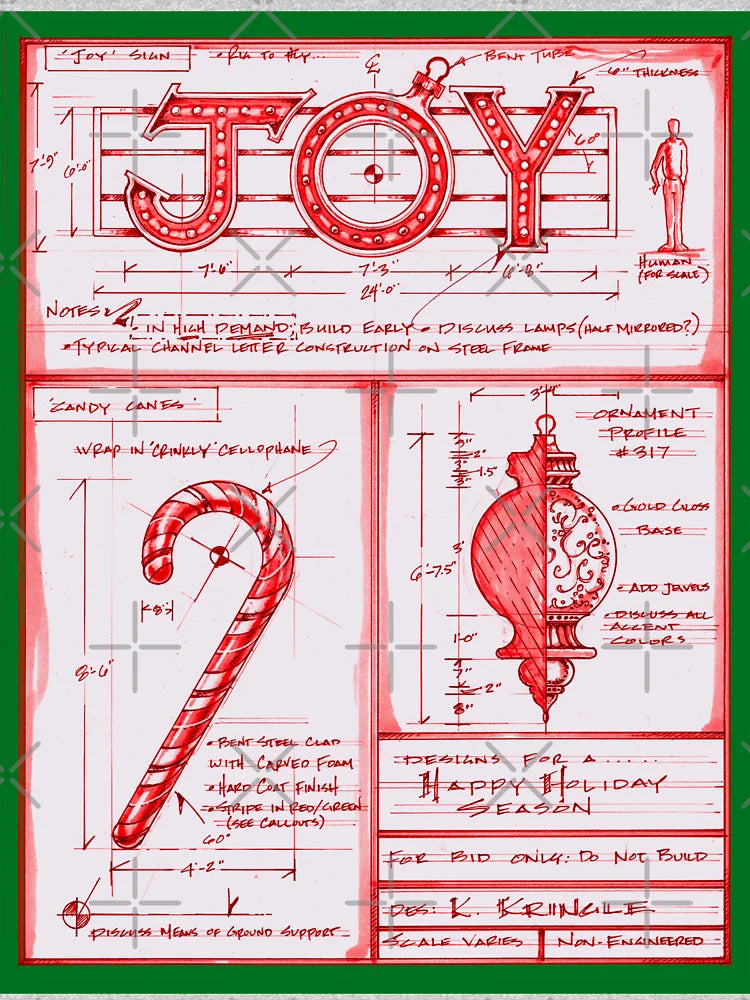 'JOY' SIGN
• RIG TO FLY...
℄
BENT TUBE
6" THICKNESS
JOY
7'-9"
6'-0"
60°
7'-6"
7'-3"
6'-8"
24'-0"
HUMAN
(FOR SCALE)
NOTES:
• IN HIGH DEMAND; BUILD EARLY • DISCUSS LAMPS (HALF MIRRORED?)
• TYPICAL CHANNEL LETTER CONSTRUCTION ON STEEL FRAME
'CANDY CANES'
WRAP IN 'CRINKLY' CELLOPHANE
8"
8'-6"
• BENT STEEL CLAD
WITH CARVED FOAM
• HARD COAT FINISH
• STRIPE IN RED/GREEN
(SEE CALLOUTS)
60°
4'-2"
DISCUSS MEANS OF GROUND SUPPORT
3'-4"
ORNAMENT
PROFILE
#317
2"
3"
1.5"
3"
3'
6'-7.5"
1'-0"
7"
2"
8"
• GOLD GLOSS
BASE
• ADD JEWELS
• DISCUSS ALL
ACCENT
COLORS
DESIGNS FOR A ......
HAPPY HOLIDAY
SEASON
FOR BID ONLY: DO NOT BUILD
DES: K. KRINGLE
SCALE VARIES
NON-ENGINEERED